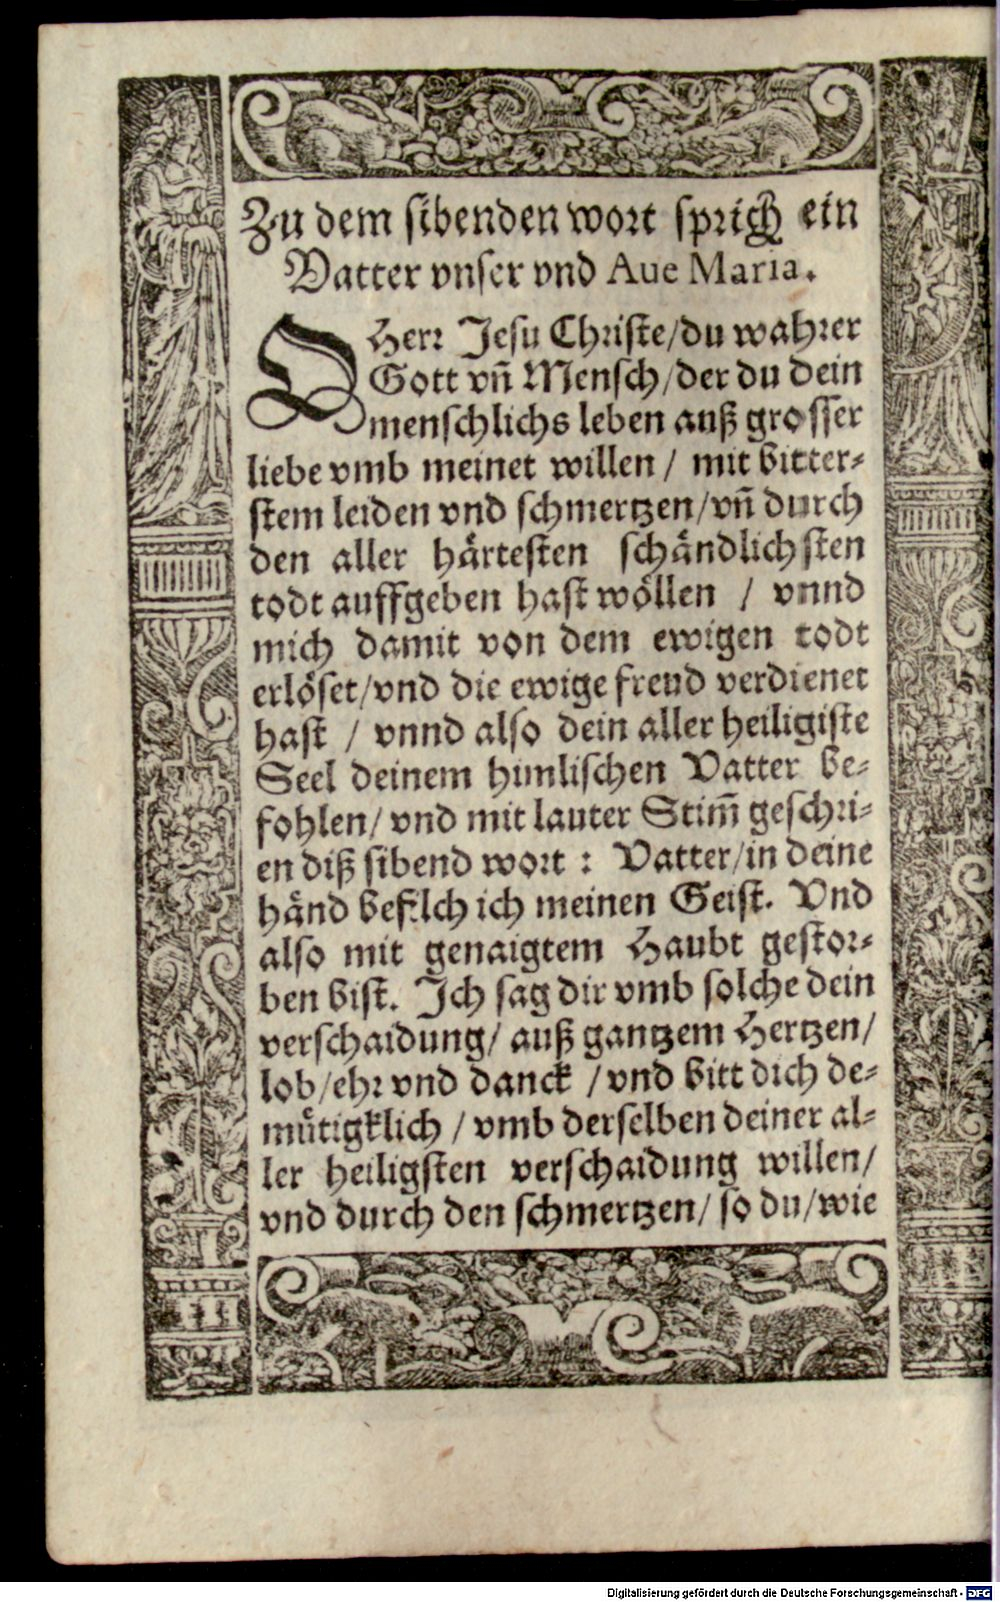 Zu dem sibenden wort sprich ein
Vatter vnser vnd Aue Maria.
O Herr Jesu Christe/du wahrer
Gott vñ Mensch/der du dein
menschlichs leben auß grosser
liebe vmb meinet willen / mit bitter-
stem leiden vnd schmertzen/vñ durch
den aller härtesten schändlichsten
todt auffgeben hast wöllen / vnnd
mich damit von dem ewigen todt
erlöset/vnd die ewige freud verdienet
hast / vnnd also dein aller heiligiste
Seel deinem himlischen Vatter be-
fohlen/ vnd mit lauter Stim̃ geschri-
en diß sibend wort : Vatter/in deine
händ befilch ich meinen Geist. Vnd
also mit genaigtem Haubt gestor-
ben bist. Ich sag dir vmb solche dein
verschaidung/ auß gantzem Hertzen/
lob/ehr vnd danck /vnd bitt dich de-
mütigklich / vmb derselben deiner al-
ler heiligsten verschaidung willen/
vnd durch den schmertzen/ so du/wie
Digitalisierung gefördert durch die Deutsche Forschungsgemeinschaft - DFG